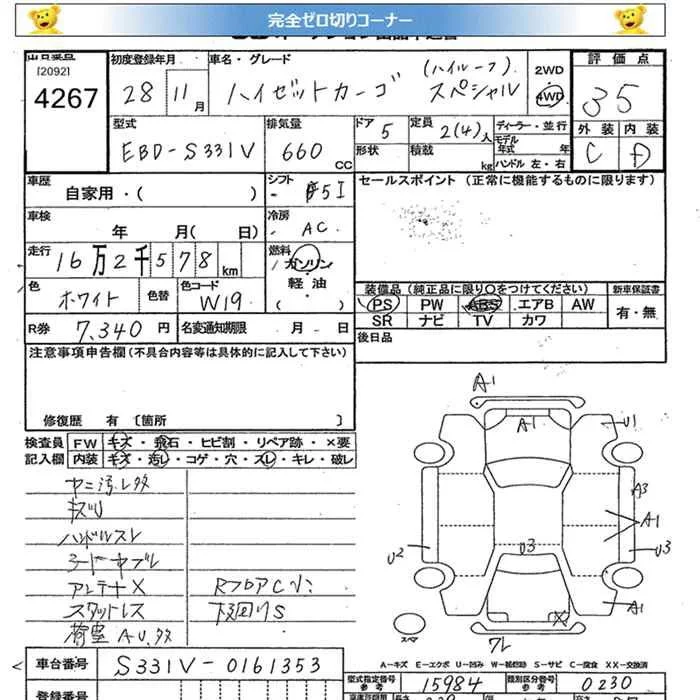 完全ゼロ切りコーナー
[2092]
4267
初度登録年月
28 11月
車名・グレード
ハイゼットカーゴ (ハイルーフ) スペシャル
2WD
4WD
評価点
35
外装 内装
C D
型式
EBD-S331V
排気量
660 CC
ドア 5
形状
定員 2(4)人
積載 kg
ディーラー・並行
モデル年式 年
ハンドル 左・右
車歴
自家用・( )
シフト
F5I
セールスポイント (正常に機能するものに限ります)
車検
年 月( 日)
冷房
AC
走行
16万2千578km
燃料
ガソリン
軽油
( )
色
ホワイト
色替
色コード
W19
装備品 (純正品に限り○をつけてください)
新車保証書
PS PW ABS エアB AW
SR ナビ TV カワ
有・無
R券 7,340円
名変通知期限 月 日
後日品
注意事項申告欄(不具合内容等は具体的に記入して下さい)
修復歴 有 〔箇所 〕
検査員 FW キズ・飛石・ヒビ割・リペア跡・×要
記入欄 内装 キズ・汚レ・コゲ・穴・スレ・キレ・破レ
ヤニ汚レタタ
キズU
ハンドルスレ
コードヤブレ
アンテナX
スタットレス
荷室AU,タタ
RフロアC小
下回りS
A1
A1
U1
A3
A1
U2
U3
U3
A1
X
ワレ
スペア
A-キズ E-エクボ U-凹み W-補修跡 S-サビ C-腐食 XX-交換済
車台番号 S331V-0161353
型式指定番号 参考 15984
類別区分番号 参考 0230
登録番号